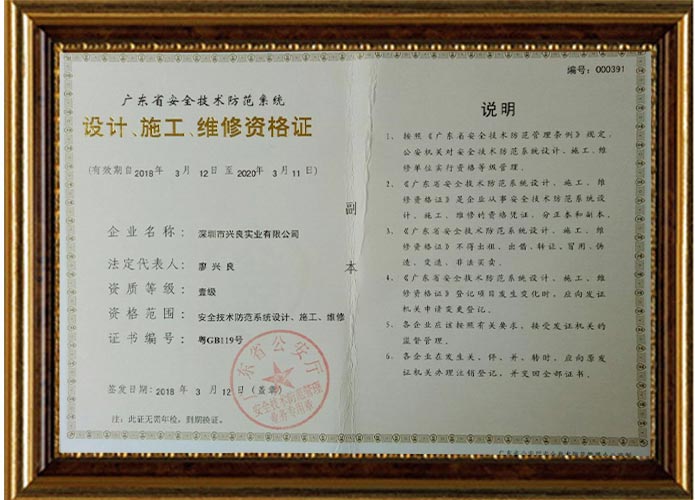 编号：000391
广东省安全技术防范系统
设计、施工、维修资格证
(有效期自2018年 3月 12日至2020年 3月11日)
副本
企业名称： 深圳市兴良实业有限公司
法定代表人： 廖兴良
资质等级： 壹级
资格范围： 安全技术防范系统设计、施工、维修
证书编号： 粤GB119号
签发日期：2018年 3月 12日(盖章)
广东省公安厅
安全技术防范管理
业务专用章
注：此证无需年检，到期换证。
说明
1、按照《广东省安全技术防范管理条例》规定，
公安机关对安全技术防范系统设计、施工、维
修单位实行资格等级管理。
2、《广东省安全技术防范系统设计、施工、维
修资格证》是企业从事安全技术防范系统设
计、施工、维修的资格凭证，分正本和副本。
3、《广东省安全技术防范系统设计、施工、维
修资格证》不得出租、出借、转让、冒用、伪
造、变造、非法买卖。
4、《广东省安全技术防范系统设计、施工、维
修资格证》登记项目发生变化时，应向发证
机关申请变更登记。
5、各企业应该按照有关要求，接受发证机关的
监督管理。
6、各企业在发生关、停、并、转时，应向原发
证机关办理注销登记，并交回全部证书。